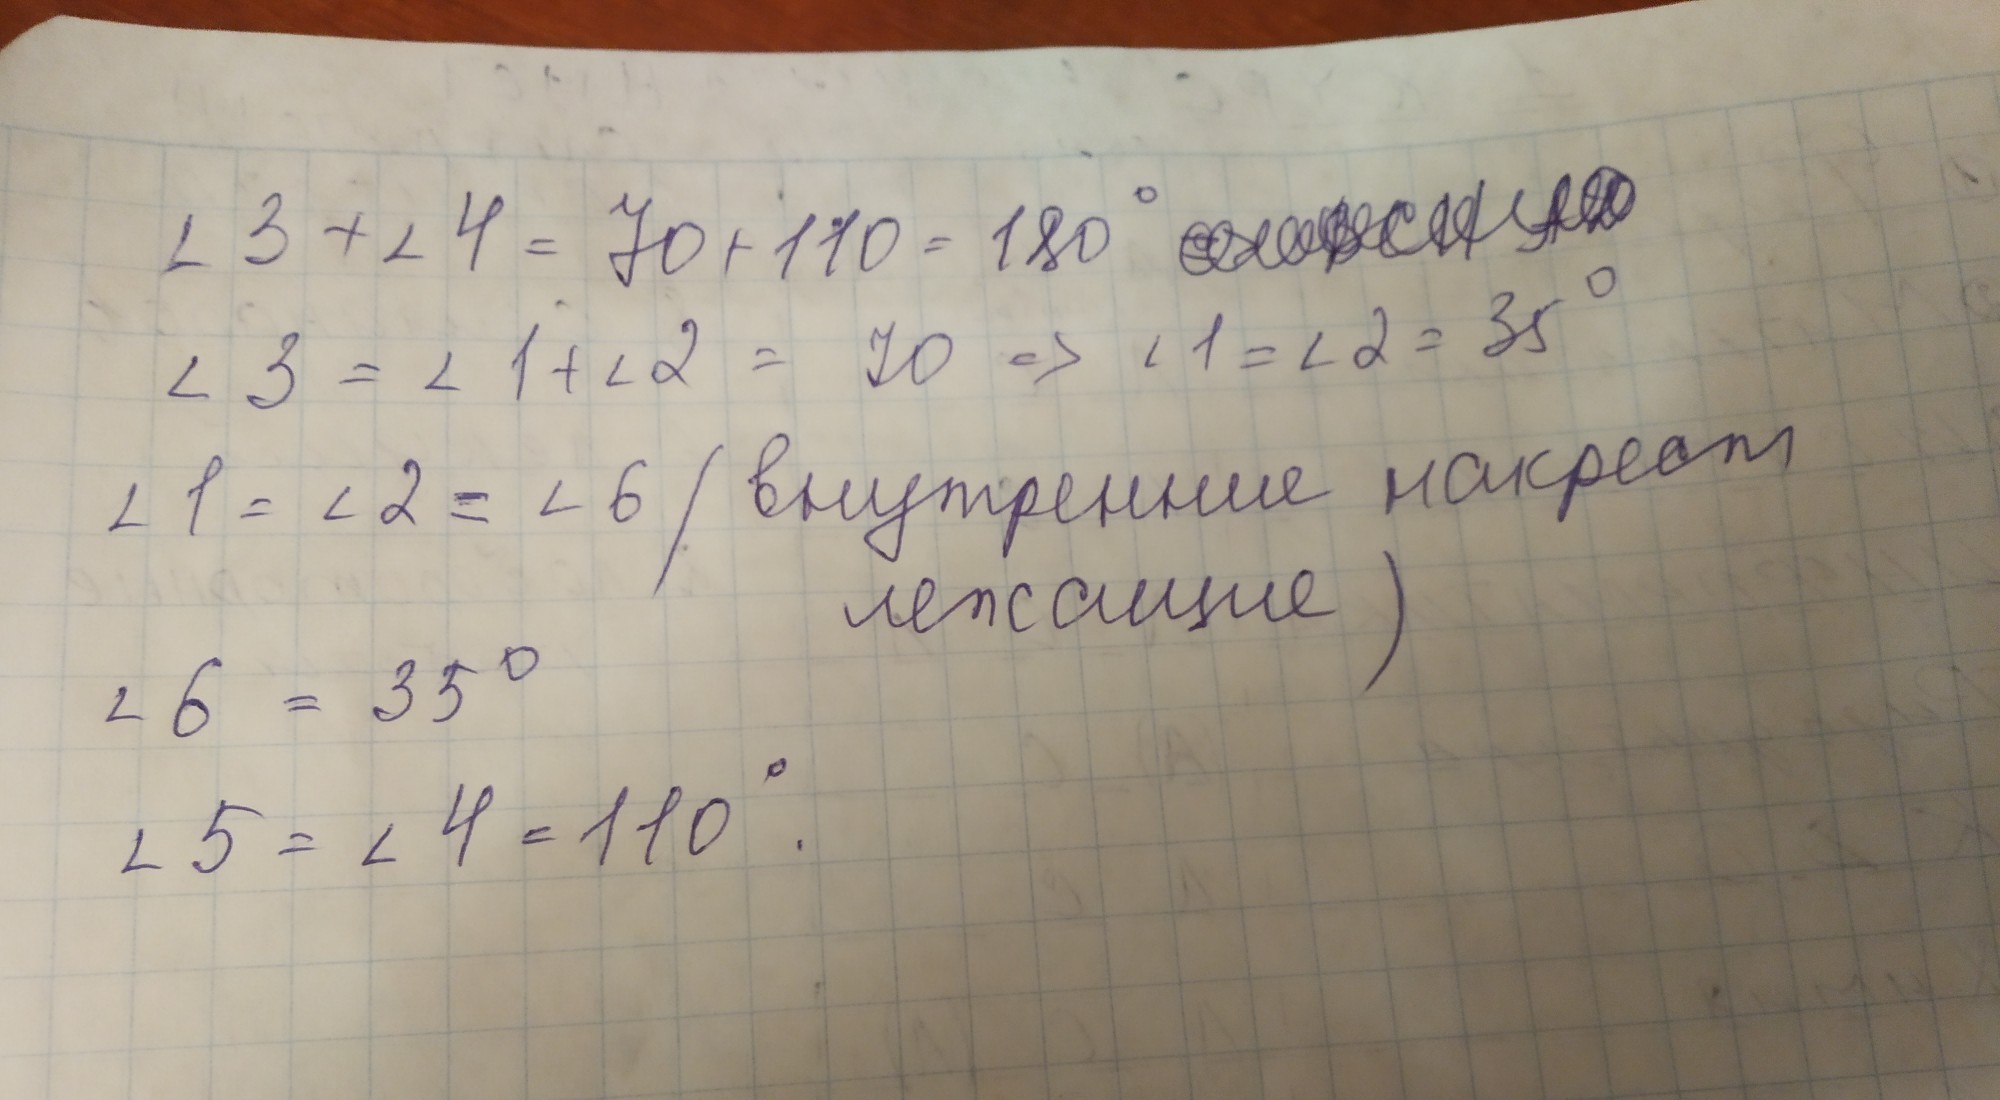 ∠3+∠4=70+110=180°
∠3=∠1+∠2=70=>∠1=∠2=35°
∠1=∠2=∠6(внутренние накрест
лежащие)
∠6=35°
∠5=∠4=110°.